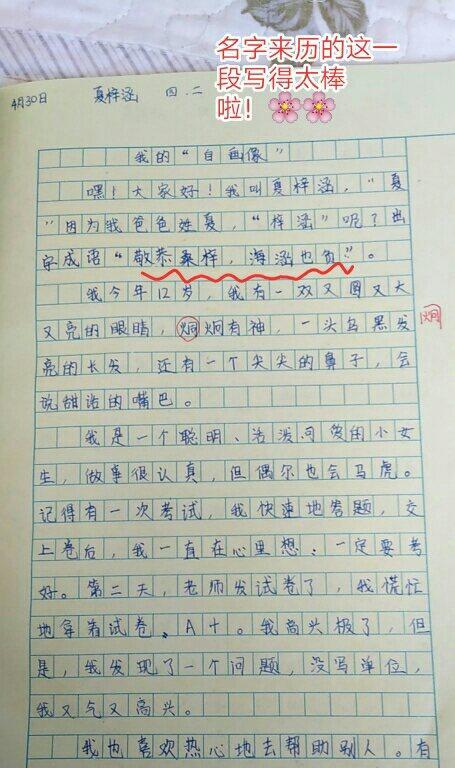 名字来历的这一
段写得太棒
啦！🌸🌸
4月30日 夏梓涵 四.二
我的“自画像”
嘿！大家好！我叫夏梓涵，“夏
”因为我爸爸姓夏，“梓涵”呢？出
字成语“敬恭桑梓，海涵地负”。
我今年12岁，我有一双又圆又大
又亮的眼睛，炯炯有神，一头乌黑发
炯
亮的长发，还有一个尖尖的鼻子，会
说甜话的嘴巴。
我是一个聪明、活泼可爱的小女
生，做事很认真，但偶尔也会马虎。
记得有一次考试，我快速地答题，交
上卷后，我一直在心里想：一定要考
好。第二天，老师发试卷了，我慌忙
地拿着试卷、A+。我高兴极了，但
是，我发现了一个问题，没写单位，
我又气又高兴。
我也喜欢热心地去帮助别人。有